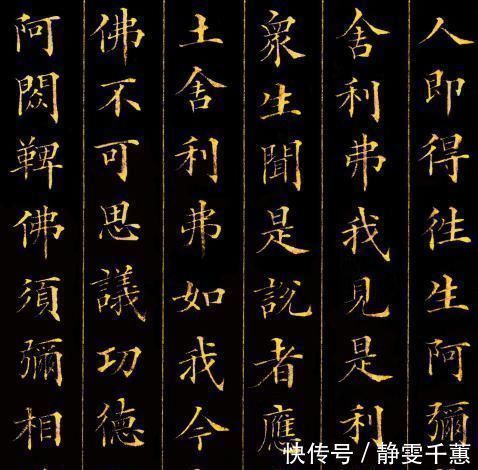 人即得徃生阿彌
舍利弗我見是利
衆生聞是說者應
土舍利弗如我今
佛不可思議功德
阿閦鞞佛須彌相
快传号 / 静雯千蕙